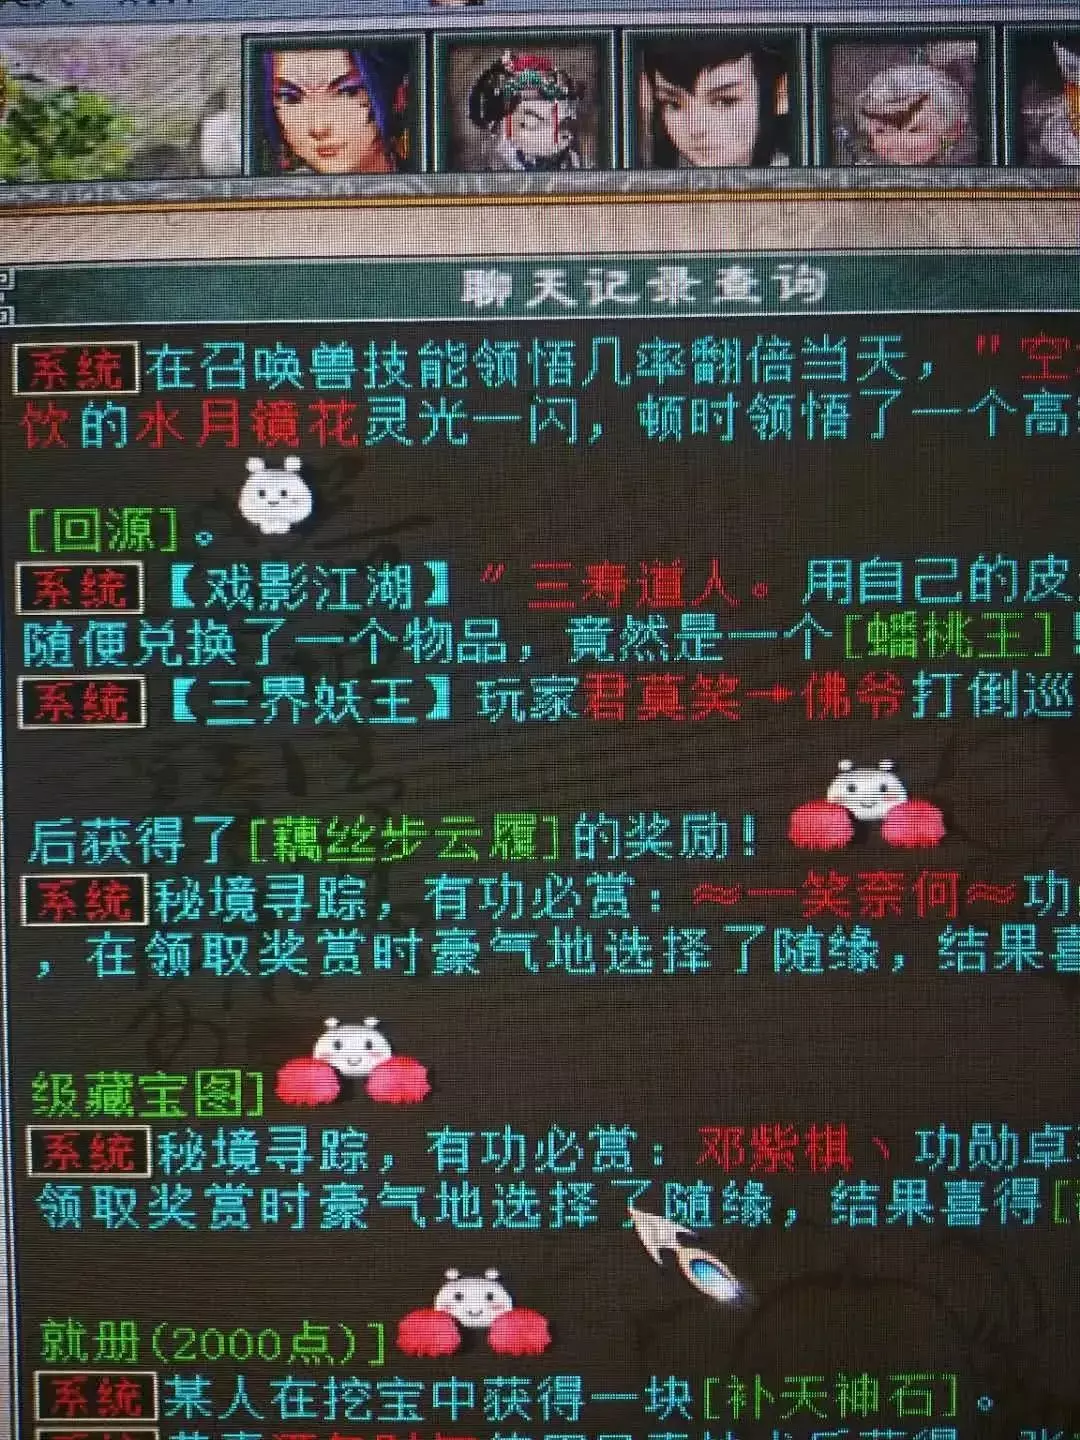 聊天记录查询
系统 在召唤兽技能领悟几率翻倍当天，"空
饮的水月镜花灵光一闪，顿时领悟了一个高
[回源]。
系统 【戏影江湖】"三寿道人。用自己的皮
随便兑换了一个物品，竟然是一个[蟠桃王]!
系统 【三界妖王】玩家君莫笑→佛爷打倒巡
后获得了[藕丝步云履]的奖励！
系统 秘境寻踪，有功必赏：～一笑奈何～功
，在领取奖赏时豪气地选择了随缘，结果喜
级藏宝图]
系统 秘境寻踪，有功必赏：邓紫棋丶功勋卓
领取奖赏时豪气地选择了随缘，结果喜得[
就册(2000点)]
系统 某人在挖宝中获得一块[补天神石]。